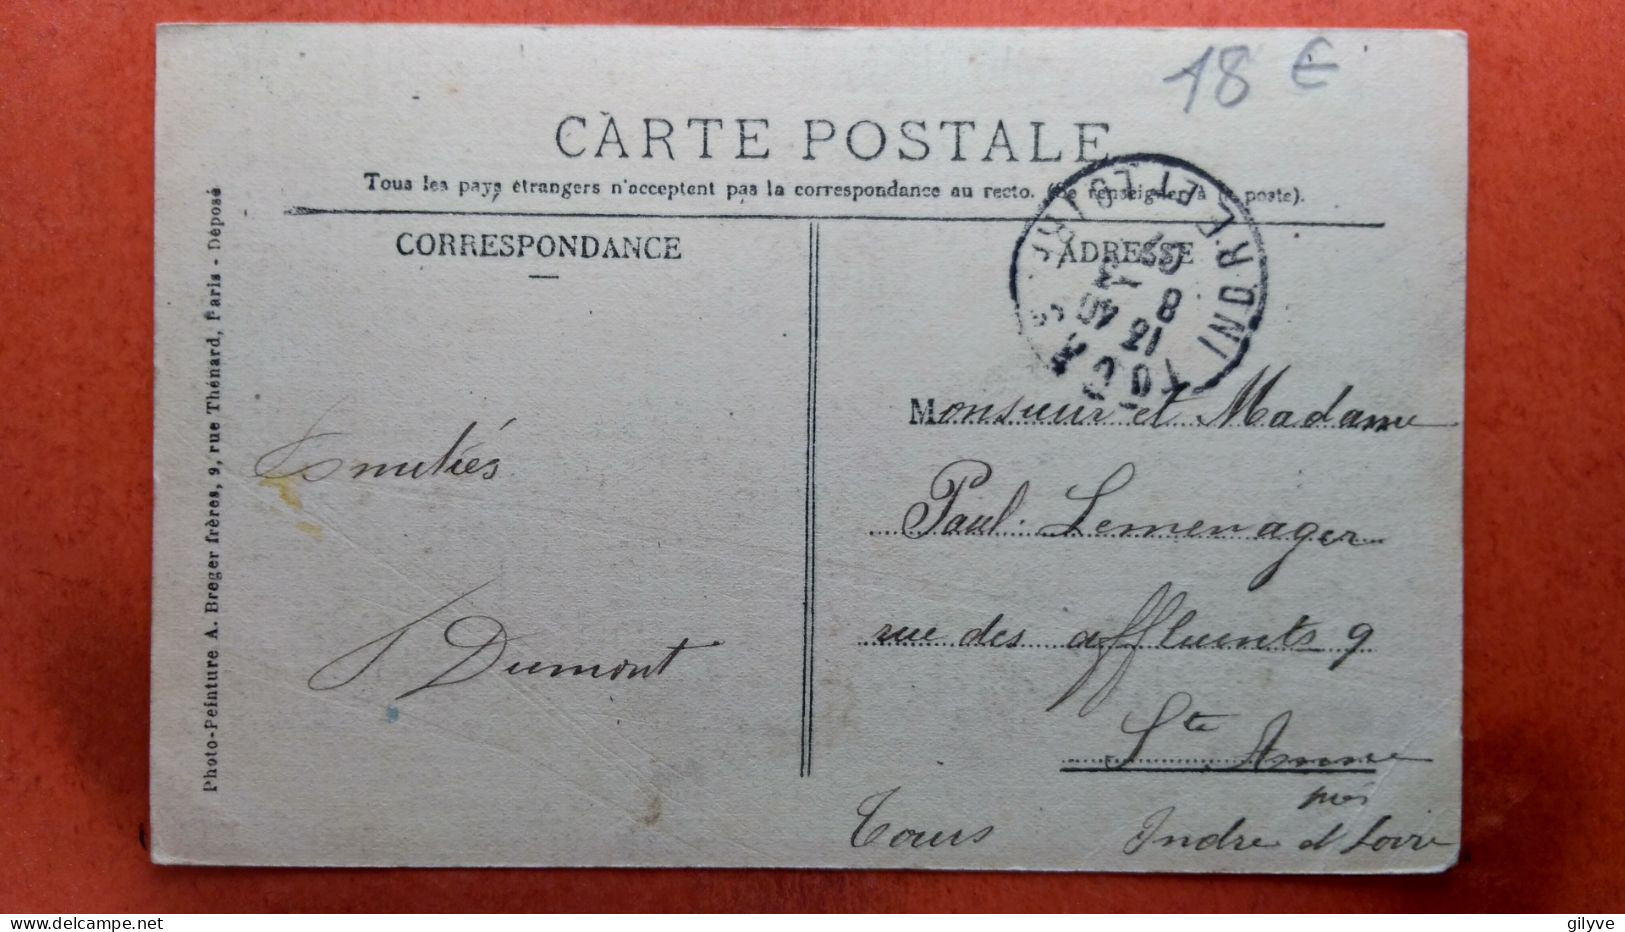 18 €
CARTE POSTALE
Tous les pays étrangers n'acceptent pas la correspondance au recto. (Se renseigner à la poste).
CORRESPONDANCE
ADRESSE
INDRE-ET-LOIRE
Photo-Peinture A. Breger frères, 9, rue Thénard, Paris - Déposé
Amitiés
Dumont
Monsieur et Madame
Paul Lemenager
rue des affluents 9
Ste Anne
près
Tours Indre et Loire
gilyve